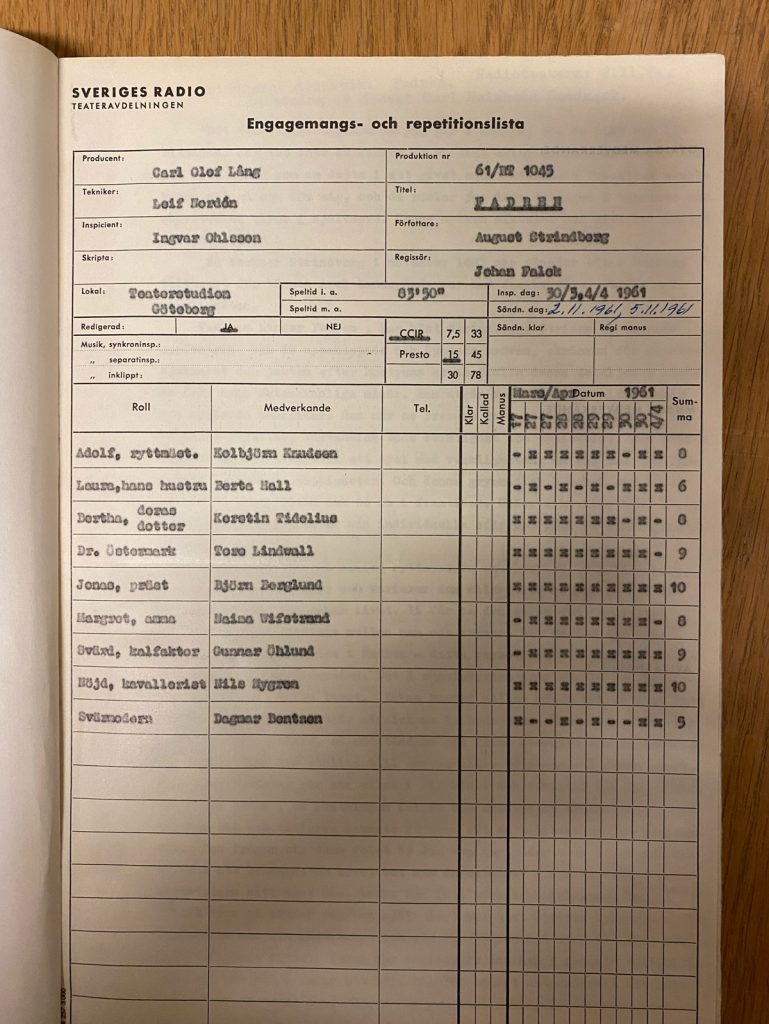 SVERIGES RADIO
TEATERAVDELNINGEN
Engagemangs- och repetitionslista
Producent: Carl Olof Lång
Produktion nr 61/HT 1045
Tekniker: Leif Nordén
Titel: FADREN
Inspicient: Ingvar Ohlsson
Författare: August Strindberg
Skripta:
Regissör: Johan Falck
Lokal: Teaterstudion Göteborg
Speltid i. a. 83'50"
Speltid m. a.
Insp. dag: 30/3,4/4 1961
Sändn. dag: 2.11.1961, 5.11.1961
Redigerad: JA NEJ
CCIR 7,5 33
Sändn. klar
Regi manus
Musik, synkroninsp.:
„ separatinsp.:
Presto 15 45
„ inklippt:
30 78
Roll Medverkande Tel. Klar Kallad Manus Mars/Apr Datum 1961 Summa
17 27 27 28 28 29 29 30 30 4/4
Adolf, ryttmäst. Kolbjörn Knudsen - x x x x x x - x x 8
Laura, hans hustru Berta Hall - x - x - x - x x x 6
Bertha, deras dotter Kerstin Tidelius x x x x x x x - x - 8
Dr. Östermark Tore Lindwall x x x x x x x x x - 9
Jonas, präst Björn Berglund x x x x x x x x x x 10
Margret, amma Naima Wifstrand - x x x x x x x x - 8
Svärd, kalfaktor Gunnar Öhlund - x x x x x x x x x 9
Nöjd, kavallerist Nils Nygren x x x x x x x x x x 10
Svärmodern Dagmar Bentzen x - - x - x - - x x 5